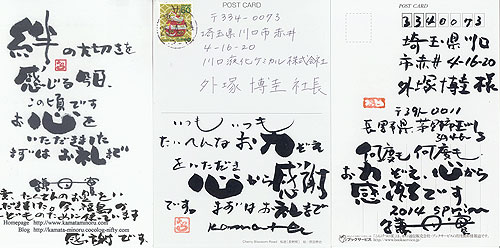 絆の大切さを
感じる今日
この頃です
お心を
いただきました
まずはお礼まで
鎌田實
いただきました
福島の
子どものために使います
Homepage http://www.kamataminoru.com
Blog http://kamata-minoru.cocolog-nifty.com
感謝です。
POST CARD
〒334-0073
埼玉県川口市赤井
4-16-20
川口液化ケミカル株式会社
外塚博圭社長
いつも いつも
たいへんなお力ぞえ
をいただき
心から感謝
です。まずはお礼まで
Kamata
POST CARD
3340073
埼玉県川口
市赤井4-16-20
外塚博圭様
〒391-0011
長野県茅野市玉川
何度も何度も
お力ぞえ、心から
感謝です
2014 spring
鎌田實
ブックサービス